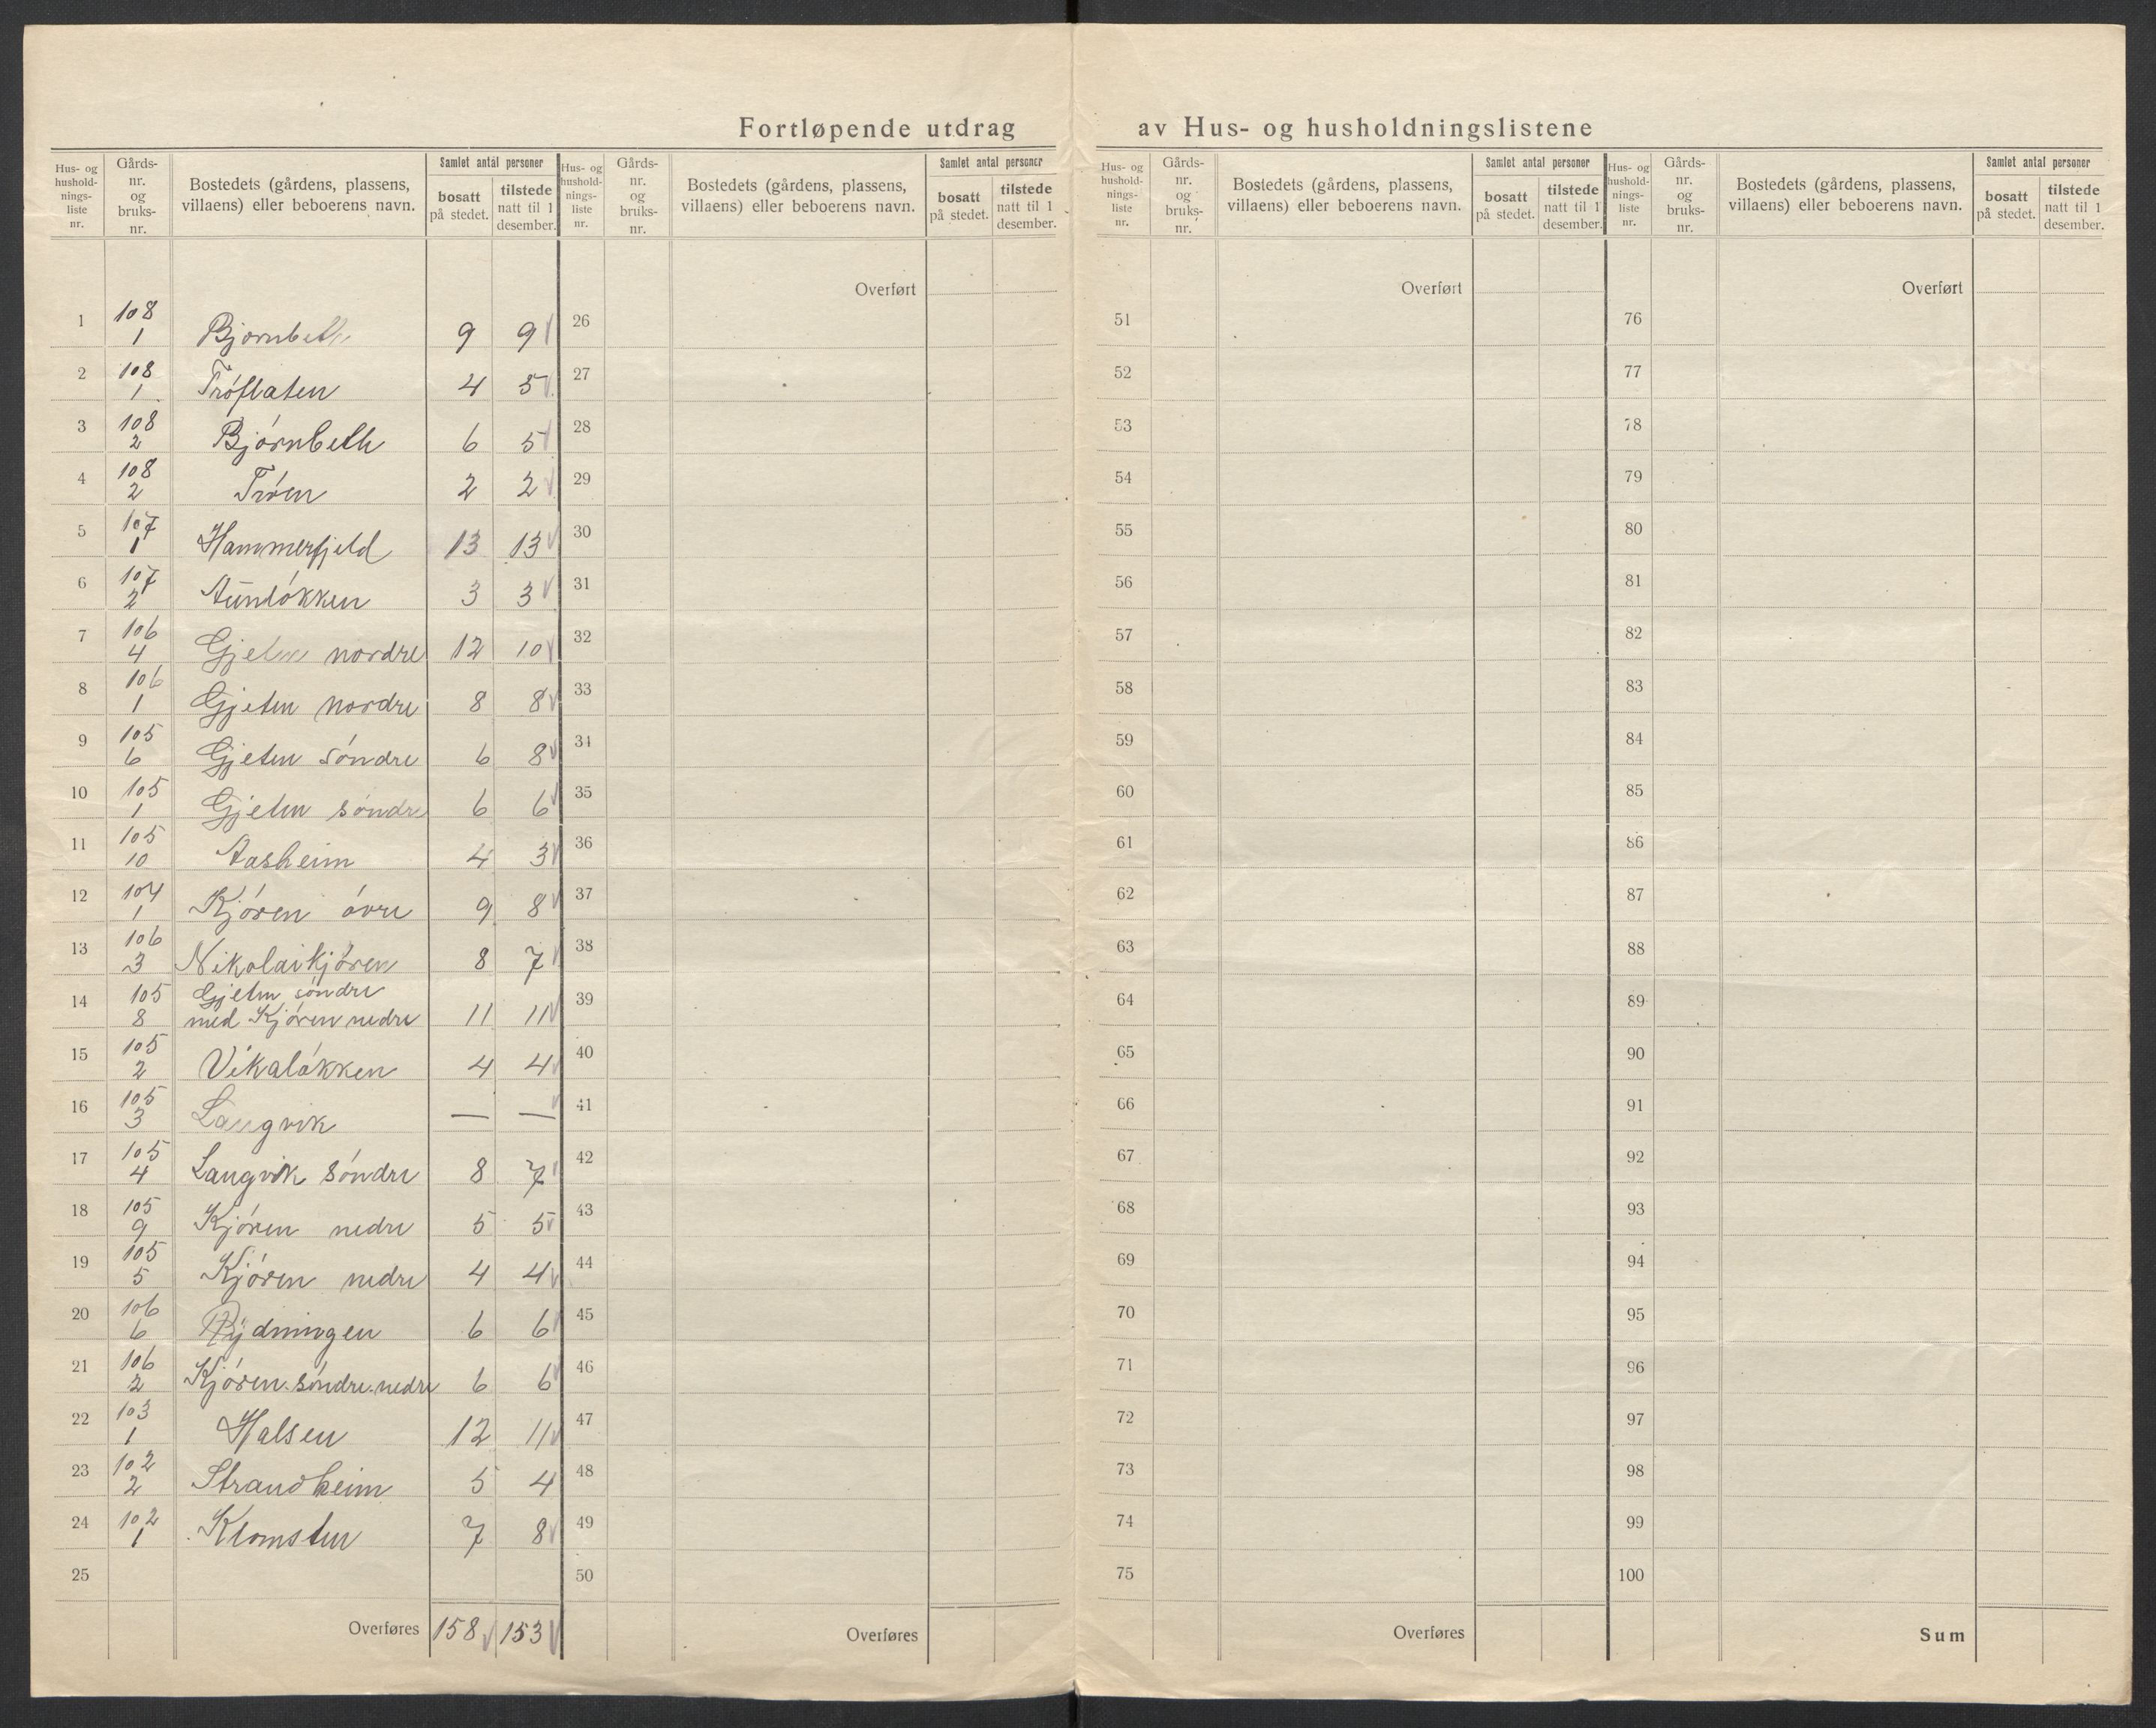 Fortløpende utdrag av Hus- og husholdningslistene
Hus- og hushold-nings-liste nr. | Gårds-nr. og bruks-nr. | Bostedets (gårdens, plassens, villaens) eller beboerens navn. | Samlet antal personer bosatt på stedet. | tilstede natt til 1 desember.
1 | 108 1 | Bjørnbeth | 9 | 9
2 | 108 1 | Trøflaten | 4 | 5
3 | 108 2 | Bjørnbeth | 6 | 5
4 | 108 2 | Trøen | 2 | 2
5 | 107 1 | Hammerfjeld | 13 | 13
6 | 107 2 | Aunløkken | 3 | 3
7 | 106 4 | Gjeten nordre | 12 | 10
8 | 106 1 | Gjeten nordre | 8 | 8
9 | 105 6 | Gjeten søndre | 6 | 8
10 | 105 1 | Gjeten søndre | 6 | 6
11 | 105 10 | Aasheim | 4 | 3
12 | 104 1 | Kjøren øvre | 9 | 8
13 | 106 3 | Nikolaikjøren | 8 | 7
14 | 105 8 | Gjeten søndre med Kjøren nedre | 11 | 11
15 | 105 2 | Vikaløkken | 4 | 4
16 | 105 3 | Langvik | — | —
17 | 105 4 | Langvik søndre | 8 | 7
18 | 105 9 | Kjøren nedre | 5 | 5
19 | 105 5 | Kjøren nedre | 4 | 4
20 | 106 6 | Rydningen | 6 | 6
21 | 106 2 | Kjøren søndre nedre | 6 | 6
22 | 103 1 | Halsen | 12 | 11
23 | 102 2 | Strandheim | 5 | 4
24 | 102 1 | Klomsten | 7 | 8
25
Overføres | 158 | 153
Hus- og hushold-nings-liste nr. | Gårds-nr. og bruks-nr. | Bostedets (gårdens, plassens, villaens) eller beboerens navn. | Samlet antal personer bosatt på stedet. | tilstede natt til 1 desember.
Overført
26
27
28
29
30
31
32
33
34
35
36
37
38
39
40
41
42
43
44
45
46
47
48
49
50
Overføres
Hus- og hushold-nings-liste nr. | Gårds-nr. og bruks-nr. | Bostedets (gårdens, plassens, villaens) eller beboerens navn. | Samlet antal personer bosatt på stedet. | tilstede natt til 1 desember.
Overført
51
52
53
54
55
56
57
58
59
60
61
62
63
64
65
66
67
68
69
70
71
72
73
74
75
Overføres
Hus- og hushold-nings-liste nr. | Gårds-nr. og bruks-nr. | Bostedets (gårdens, plassens, villaens) eller beboerens navn. | Samlet antal personer bosatt på stedet. | tilstede natt til 1 desember.
Overført
76
77
78
79
80
81
82
83
84
85
86
87
88
89
90
91
92
93
94
95
96
97
98
99
100
Sum